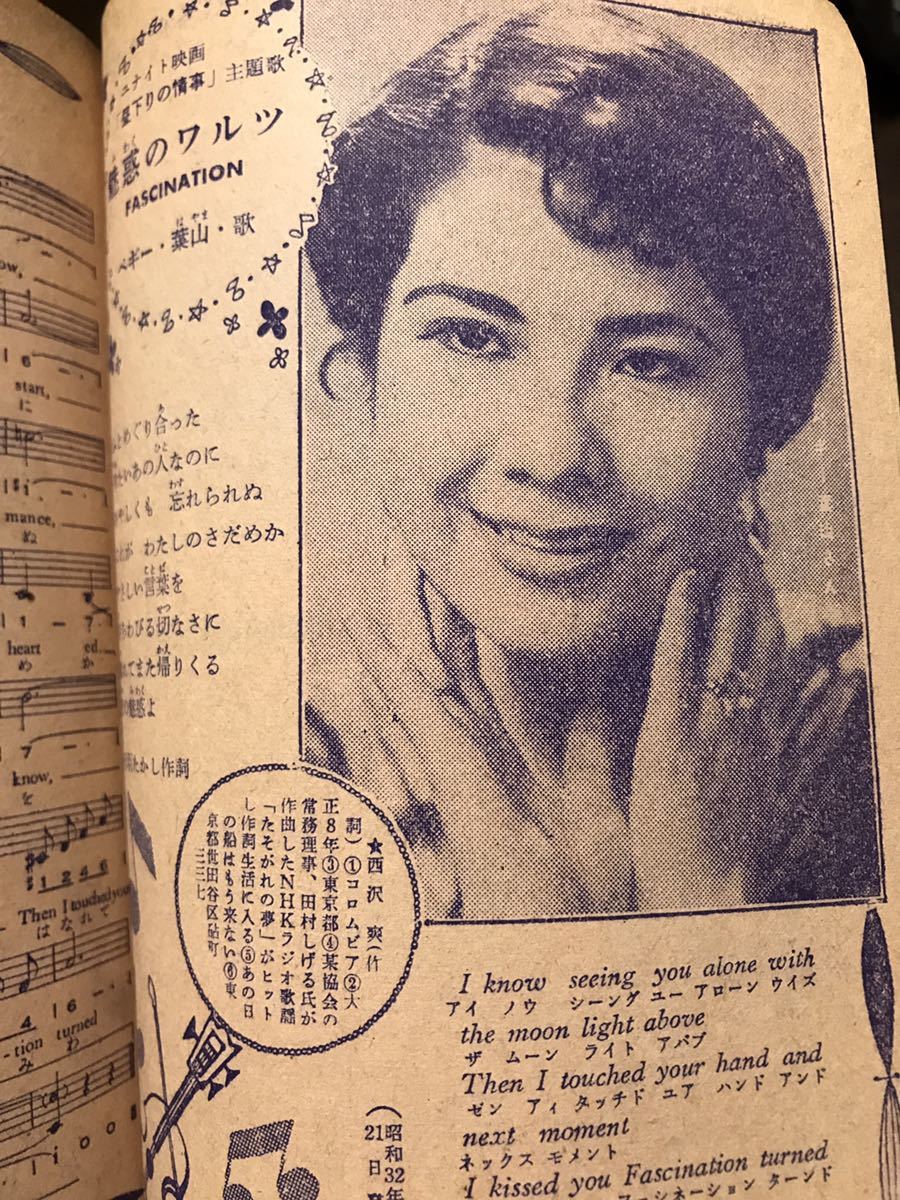 ユナイト映画
「昼下りの情事」主題歌
魅惑のワルツ
FASCINATION
ペギー・葉山・歌
めぐり合った
あの人なのに
忘れられぬ
わたしのさだめか
さしい言葉を
わびる切なさに
てまた帰りくる
魅惑よ
たかし作詞
★西沢 爽(作
詞)①コロムビア②大
正8年③東京都④某協会の
常務理事、田村しげる氏が
作曲したNHKラジオ歌謡
「たそがれの夢」がヒット
し作詞生活に入る⑤あの日
の船はもう来ない⑥東
京都世田谷区砧町
三三七
I know seeing you alone with
アイ ノウ シーング ユー アローン ウイズ
the moon light above
ザ ムーン ライト アバブ
Then I touched your hand and
ゼン アィ タッチド ユア ハンド アンド
next moment
ネックス モメント
I kissed you Fascination turned
ファシネーション ターンド
(昭和32年
21日
start,
に
mance,
ぬ
heart ed.
めか
know,
を
1 2 4 6
Then I touched your
はなれて
-tion turned
みわ